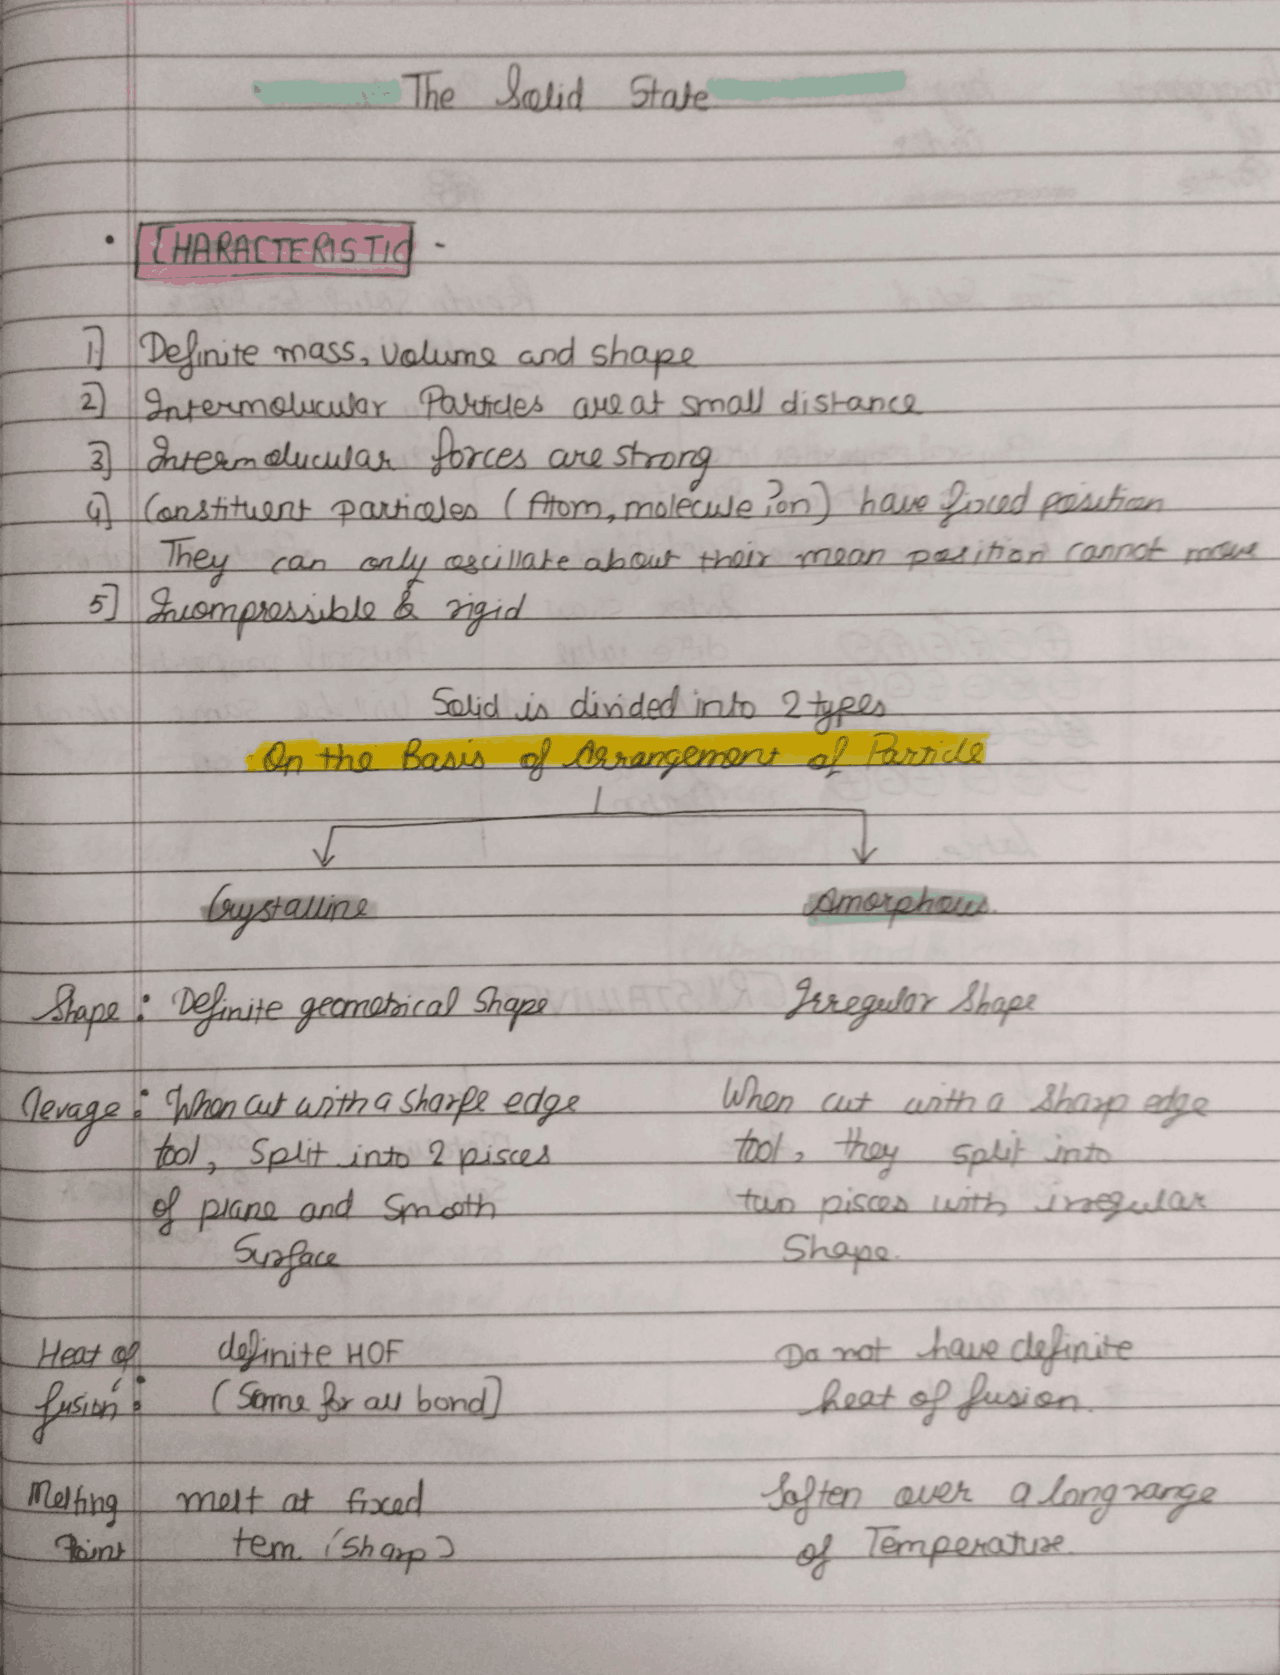 The Solid State
• CHARACTERISTIC -
1] Definite mass, volume and shape
2] Intermolucular Particles are at small distance
3] Intermolucular forces are strong
4] Constituent particales (Atom, molecule ion) have fixed position
They can only oscillate about their mean position cannot move
5] Incompressible & rigid
Solid is divided into 2 types
On the Basis of Arrangement of Particle
Crystalline Amorphous.
Shape : Definite geometrical Shape Irregular Shape
Clevage : When cut with a sharpe edge When cut with a sharp edge
tool, Split into 2 pisces tool, they split into
of plane and smooth two pisces with irregular
Surface Shape.
Heat of definite HOF Do not have definite
fusion : (Same for all bond) heat of fusion.
Melting melt at fixed Soften over a long range
Point tem. (Sharp) of Temperature.